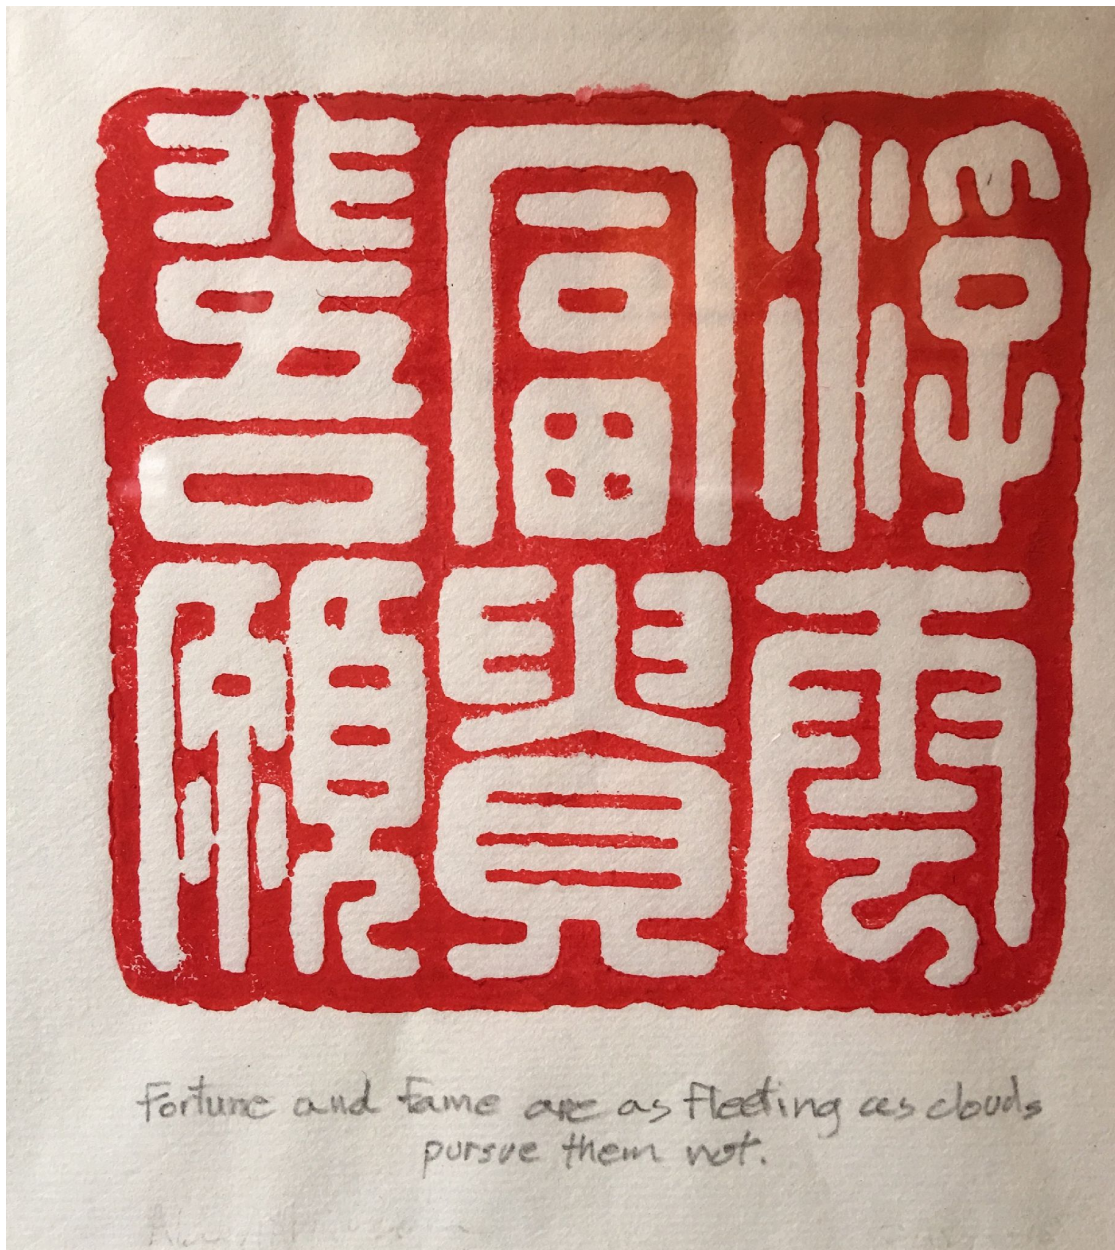 浮雲
富貴
非吾願
Fortune and fame are as fleeting as clouds
pursue them not.